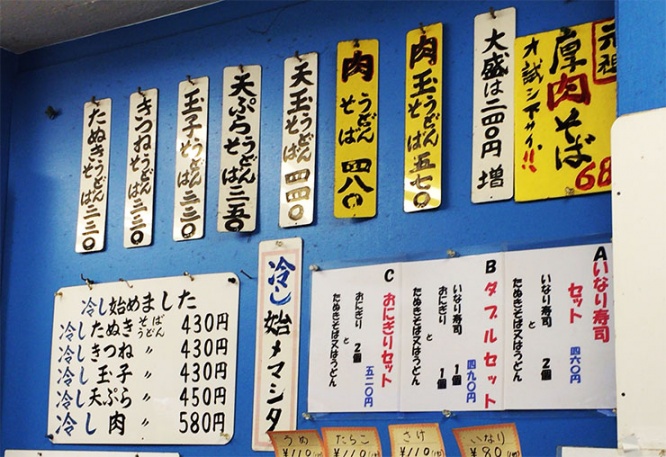 元祖
厚肉そば
オ試シ下サイ!!
68
大盛は二四〇円増
肉玉うどんそば 五七〇
肉うどんそば 四八〇
天玉うどんそば 四四〇
天ぷらうどんそば 三五〇
玉子うどんそば 三三〇
きつねうどんそば 三三〇
たぬきうどんそば 三三〇
A いなり寿司セット 四六〇円
いなり寿司 2個
と
たぬきそば又はうどん
B ダブルセット 四九〇円
いなり寿司 1個
おにぎり 1個
と
たぬきそば又はうどん
C おにぎりセット 五二〇円
おにぎり 2個
と
たぬきそば又はうどん
冷し始メマシタ
冷し始めました
冷したぬきそばうどん 430円
冷しきつね 〃 430円
冷し玉子 〃 430円
冷し天ぷら 〃 450円
冷し肉 〃 580円
うめ
¥110
たらこ
¥110
さけ
¥110
いなり
¥80